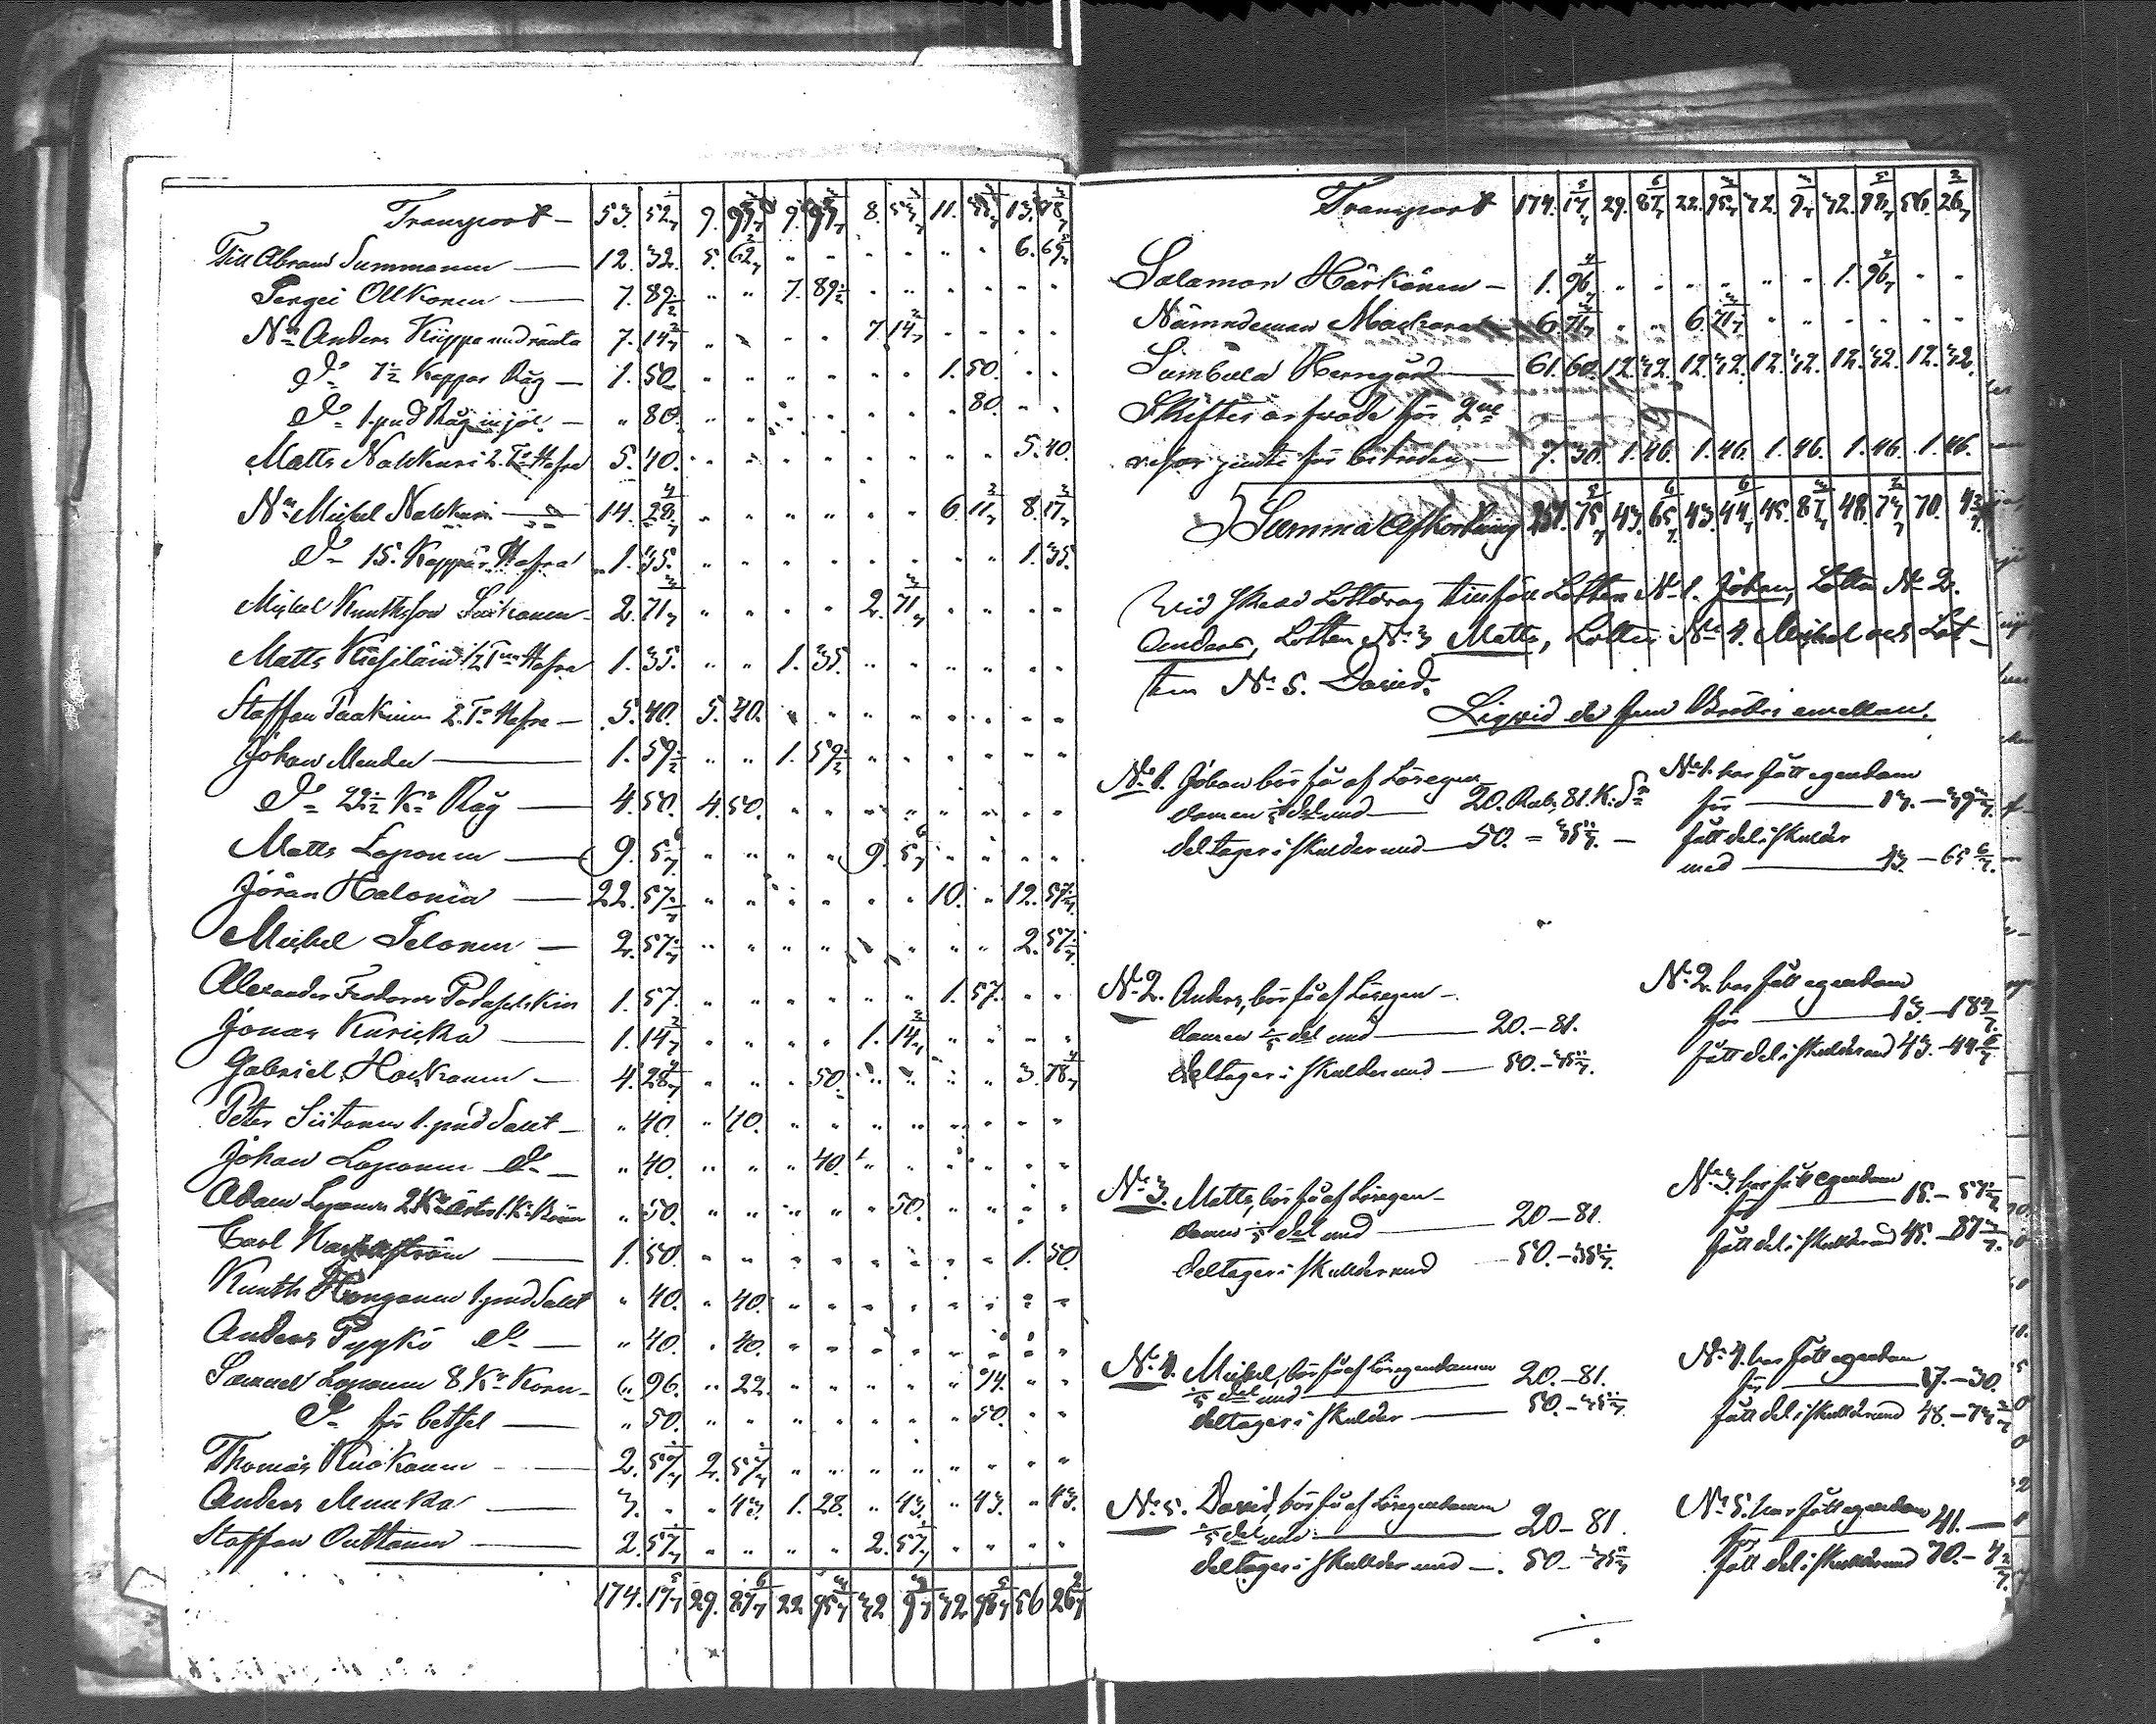 Transport — 53. 52 1/7 9. 9. 8. 11. 13.
Till Abram Summanen — 12. 32. 5. 62 2/7 " " " " " " 6. 69 5/7
Sergei Ollkonen — 7. 89 1/2 " " 7. 89 1/2 " " " " " "
Nm Anders Kiippa med ränta 7. 14 2/7 " " " " 7. 14 2/7 " " " "
Do 7 1/2 Kappar Råg — 1. 50. " " " " " " 1. 50. " "
Do 1. pud Rågmjöl — " 80. " " " " " " " 80. " "
Matts Nakkuri 2. Tr Hafra 5. 40. " " " " " " " " 5. 40.
Nm Mickel Nakkuri — 14. 28 4/7 " " " " " " 6. 11 2/7 8. 17 2/7
Do 15. Kappar Hafra 1. 35. " " " " " " " " 1. 35.
Mickel Knuthsson — 2. 71 3/7 " " " " 2. 71 3/7 " " " "
Matts 1/2 Tna Hafra 1. 35. " " 1. 35. " " " " " "
Staffan Taakinen 2. Tr Hafra — 5. 40. 5. 40. " " " " " " " "
Johan Meuder — 1. 59 1/2 " " 1. 59 1/2 " " " " " "
Do 22 1/2 Kr Råg — 4. 50. 4. 50. " " " " " " " "
Matts Loponen — 9. 5 6/7 " " " " 9. 5 6/7 " " " "
Jöran Halonen — 22. 57 1/7 " " " " " " 10. " 12. 57 1/7
Mickel Ilonen — 2. 57 1/7 " " " " " " " " 2. 57 1/7
Alexander Feodorov 1. 57. " " " " " " 1. 57. " "
Jonas Kuricka — 1. 14 2/7 " " " " 1. 14 2/7 " " " "
Gabriel Hackanen — 4. 28 4/7 " " " 50. " " " " 3. 78 4/7
Peter Siitonen 1. pud Salt — " 40. " 40. " " " " " " " "
Johan Loponen Do — " 40. " " " 40. " " " " " "
Adam Loponen 2 Kr Ärter 1. Kr Korn " 50. " " " " " 50. " " " "
Carl — 1. 50. " " " " " " " " 1. 50.
Knuth Hongonen 1. pud Salt " 40. " 40. " " " " " " " "
Anders Pygkö Do — " 40. " 40. " " " " " " " "
Samuel Loponen 8. Kr Korn — " 96. " 22. " " " " " 74. " "
Do för betsel — " 50. " " " " " " " 50. " "
Thomas Kuokanen — 2. 57 1/7 2. 57 1/7 " " " " " " " "
Anders Munka — 3. " " 43. 1. 28. " 43. " 43. " 43.
Staffan Outtanen — 2. 57 1/7 " " " " 2. 57 1/7 " " " "
174. 17 5/7 29. 87 6/7 22 95 3/7 32 9 3/7 32 98 5/7 56 26 2/7
Transport 174. 17 5/7 29. 87 6/7 22. 95 3/7 32. 9 3/7 32. 98 5/7 56. 26 2/7
Salamon Härkönen — 1. 96 4/7 " " " " " " 1. 96 4/7 " "
Nämndeman Mackara — 6. 71 3/7 " " 6. 71 3/7 " " " " " "
Sumbula Herregård — 61. 60. 12. 32. 12. 32. 12. 32. 12. 32. 12. 32.
Skiftes arfvode för 2ne
resor jemte för biträden — 7. 30. 1. 46. 1. 46. 1. 46. 1. 46. 1. 46.
Summa Afkortning 251. 75 5/7 43. 65 6/7 43. 44 6/7 45. 87 3/7 48. 73 2/7 70. 4 2/7
Vid skedd Lottdrag tillföll Lotten No 1. Johan, Lotten No 2.
Anders, Lotten No 3 Matts, Lotten No 4. Mickel och Lot-
ten No 5. David.
Liqvid de fem Bröder emellan.
No 1. Johan bör få af Lösegen-
domen 1/5 del med — 20. Rub. 81. K. Sr
deltager i skulder med — 50. — 35 1/7. —
No 1. har fått egendom
för — 13. — 39 3/7.
fått del i skulder
med — 43. — 65 6/7.
No 2. Anders, bör få af Lösegen-
domen 1/5 del med — 20. — 81.
deltager i skulder med — 50. — 35 1/7.
No 2. har fått egendom
för — 13. — 18 3/7.
fått del i skulder med 43. — 44 6/7
No 3. Matts, bör få af Lösegen-
domen 1/5 del med — 20 — 81.
deltager i skulder med — 50. — 35 1/7.
No 3. har fått egendom
för — 15. —
fått del i skulder med 45. — 87 3/7.
No 4. Mickel, bör få af Lösegendomen
1/5 del med — 20. — 81.
deltager i skulder — 50. — 35 1/7
No 4. har fått egendom
för — 17. — 30.
fått del i skulder med 48. — 73 2/7
No 5. David, bör få af Lösegendomen
1/5 del med — 20 — 81.
deltager i skulder med — 50 — 35 1/7
No 5. har fått egendom
för 41. —
fått del i skulder med 70. — 4 2/7.